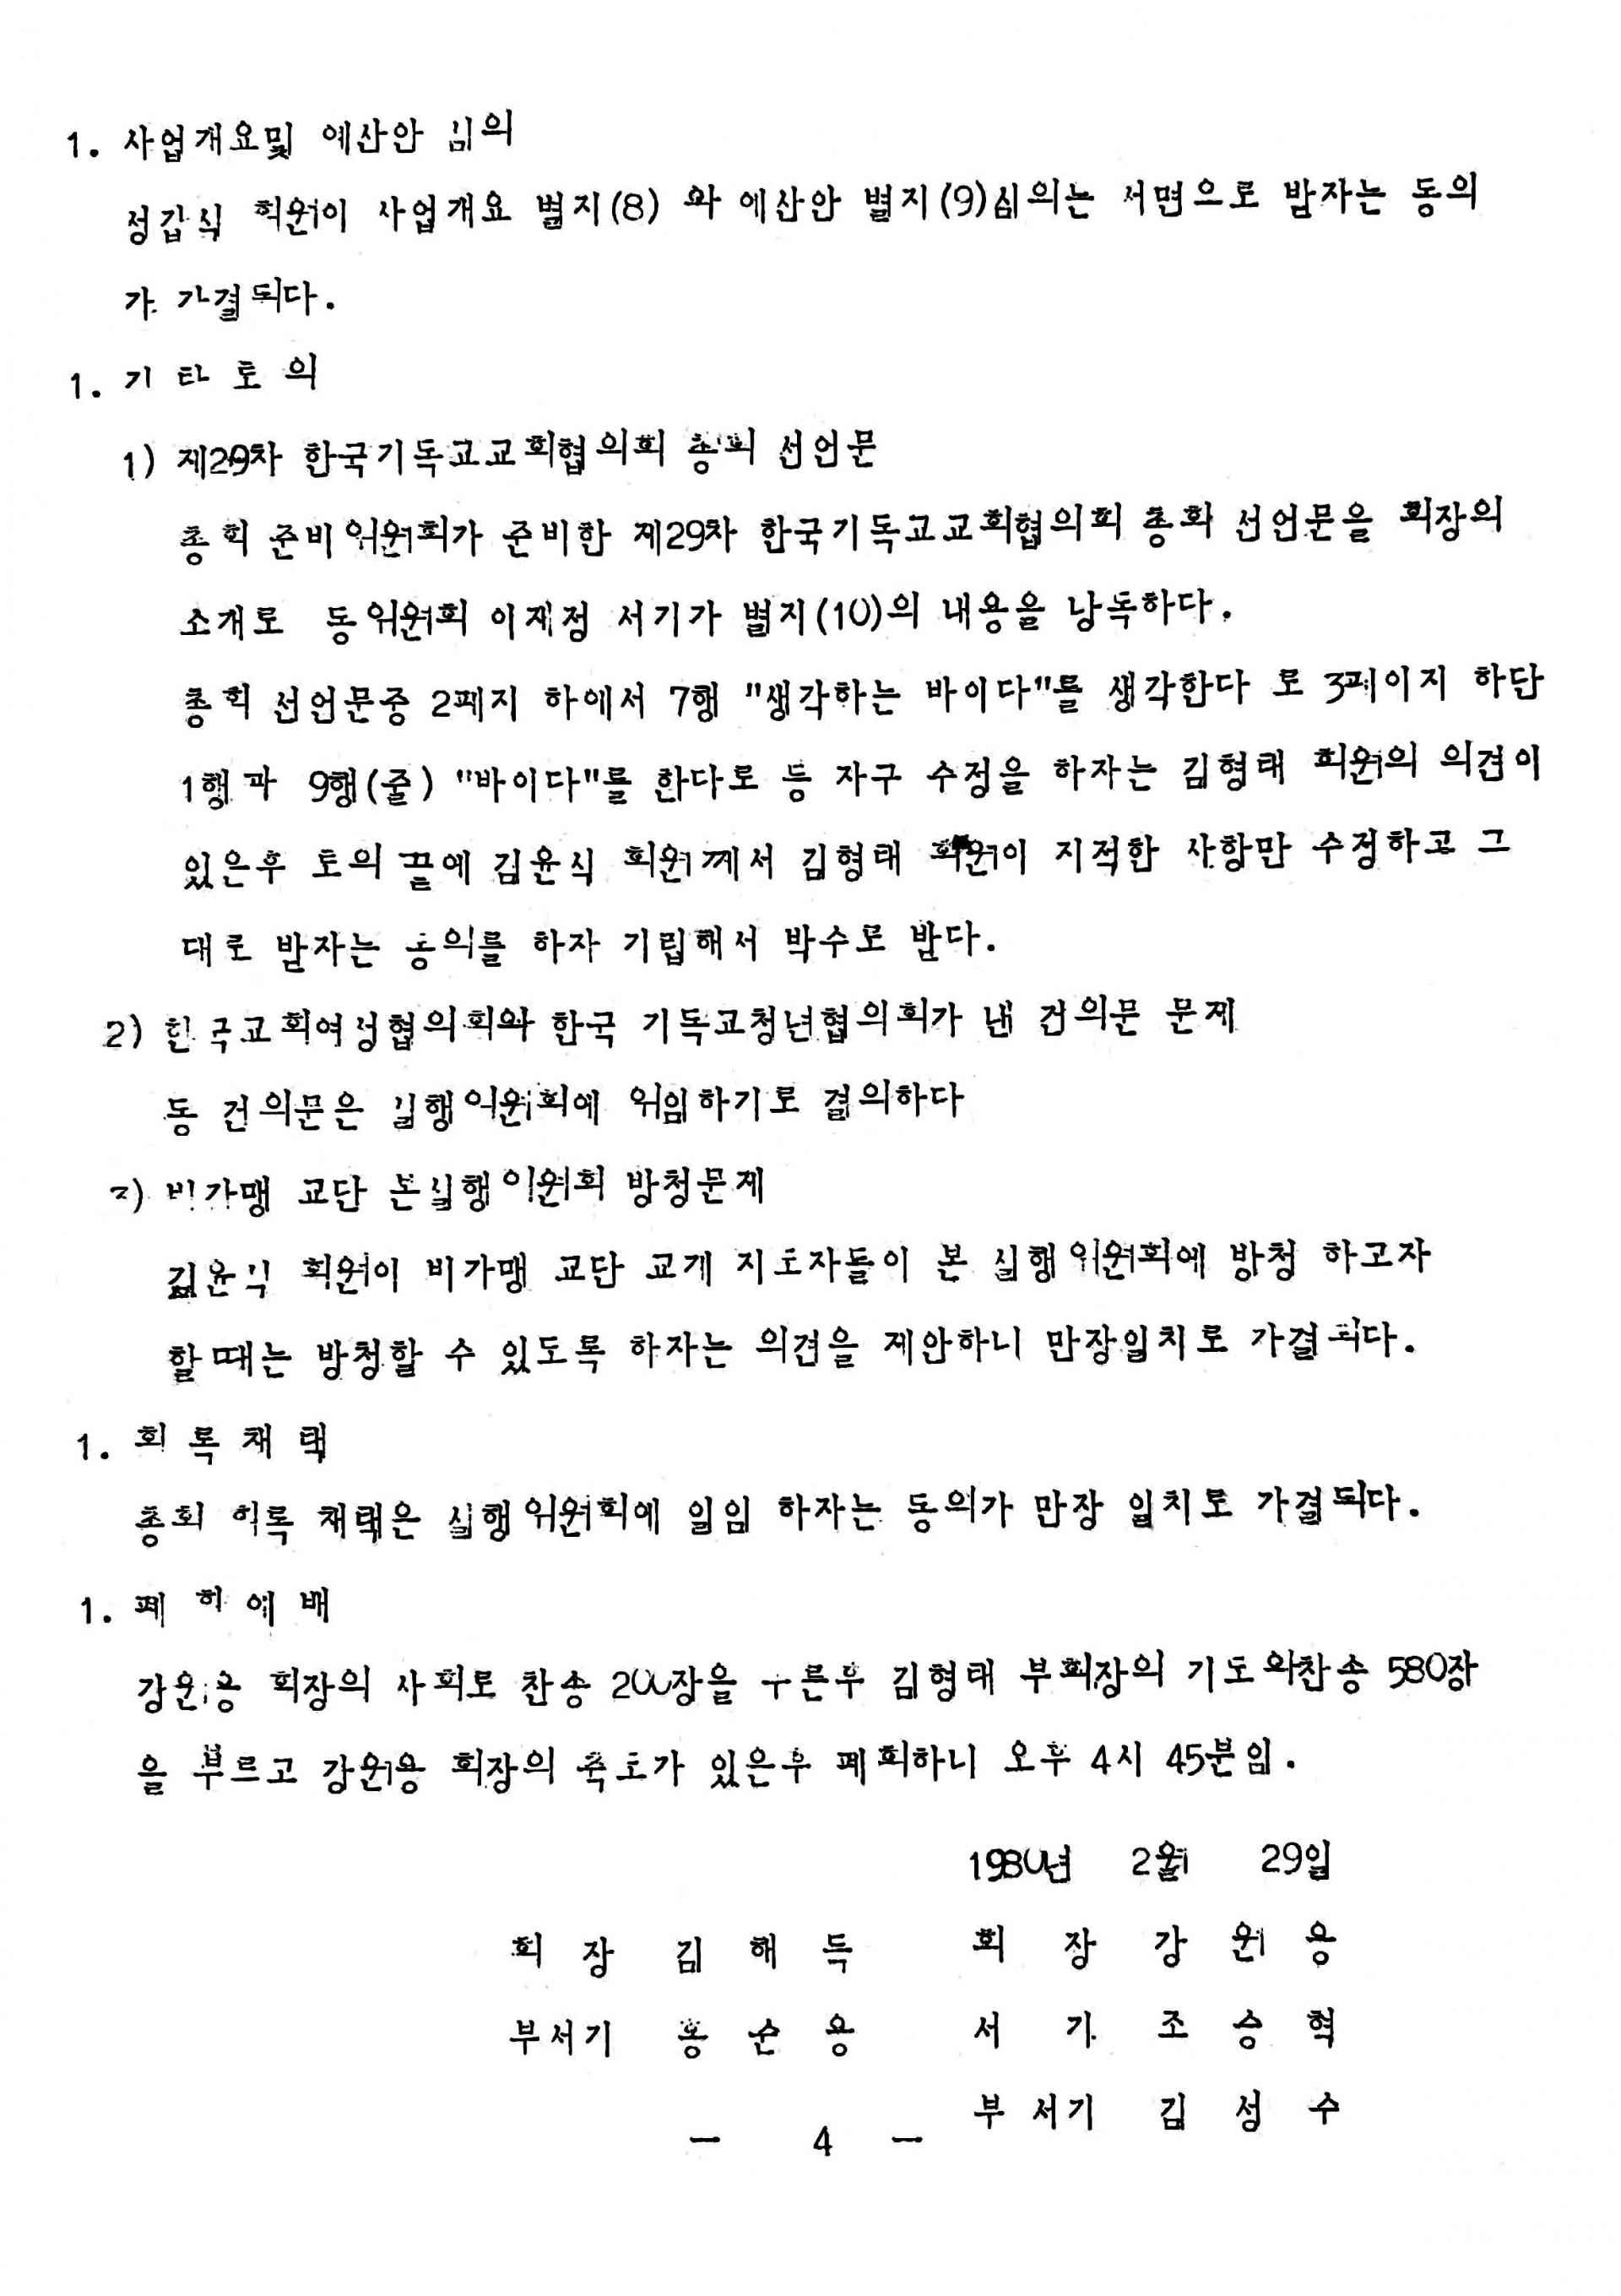 1. 사업개요및 예산안 심의
성갑식 회원이 사업개요 별지(8) 와 예산안 별지(9)심의는 서면으로 받자는 동의
가 가결되다.
1. 기 타 토 의
1) 제29차 한국기독교교회협의회 총회 선언문
총회 준비위원회가 준비한 제29차 한국기독교교회협의회 총회 선언문을 회장의
소개로 동위원회 이재정 서기가 별지(10)의 내용을 낭독하다.
총회 선언문중 2페지 하에서 7행 "생각하는 바이다"를 생각한다 로 3페이지 하단
1행과 9행(줄) "바이다"를 한다로 등 자구 수정을 하자는 김형태 회원의 의견이
있은후 토의 끝에 김윤식 회원께서 김형태 회원이 지적한 사항만 수정하고 그
대로 받자는 동의를 하자 기립해서 박수로 받다.
2) 한국교회여성협의회와 한국 기독교청년협의회가 낸 건의문 문제
동 건의문은 실행위원회에 위임하기로 결의하다
3) 비가맹 교단 본실행위원회 방청문제
김윤식 회원이 비가맹 교단 교계 지도자들이 본 실행위원회에 방청 하고자
할때는 방청할 수 있도록 하자는 의견을 제안하니 만장일치로 가결되다.
1. 회 록 채 택
총회 회록 채택은 실행위원회에 일임 하자는 동의가 만장 일치로 가결되다.
1. 폐 회 예 배
강원용 회장의 사회로 찬송 200장을 부른후 김형태 부회장의 기도와찬송 580장
을 부르고 강원용 회장의 축도가 있은후 폐회하니 오후 4시 45분임.
1980년 2월 29일
회 장 김 해 득 회 장 강 원 용
부서기 홍 순 용 서 기 조 승 혁
부 서기 김 성 수
- 4 -